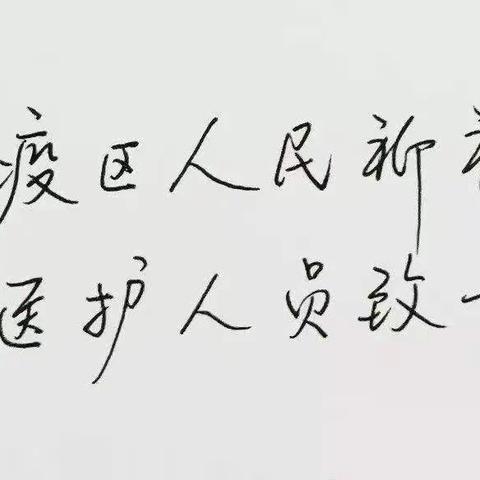 疫区人民
医护人员致